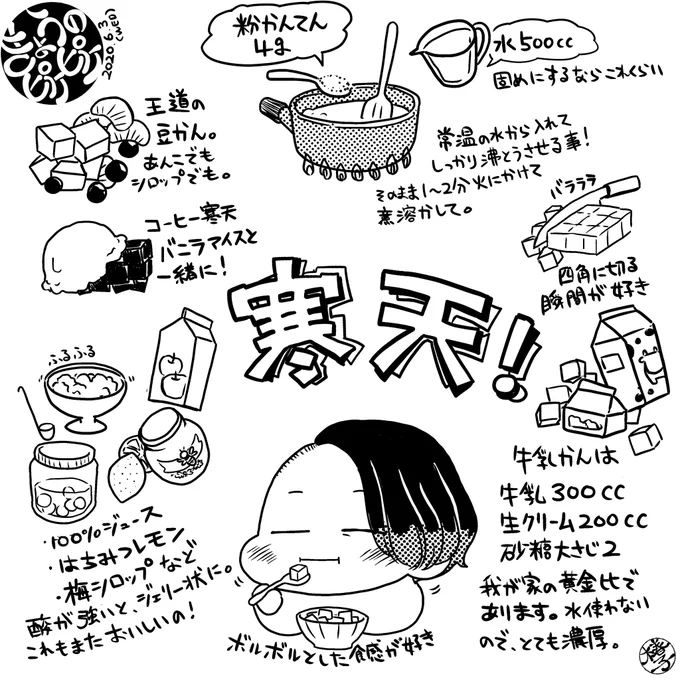 2020.6.3
(WED)
粉かんてん
4g
水500cc
固めにするならこれくらい
常温の水から入れて
しっかり沸とうさせる事!
そのまま1〜2分火にかけて
煮溶かして。
王道の
豆かん。
あんこでも
シロップでも。
コーヒー寒天
バニラアイスと
一緒に!
バラララ
四角に切る
瞬間が好き
寒天!
ふるふる
・100%ジュース
・はちみつレモン
・梅シロップなど
酸が強いと、ジェリー状に。
これもまたおいしいの!
牛乳かんは
牛乳300cc
生クリーム200cc
砂糖大さじ2
我が家の黄金比で
あります。水使わない
ので、とても濃厚。
ボルボルとした食感が好き